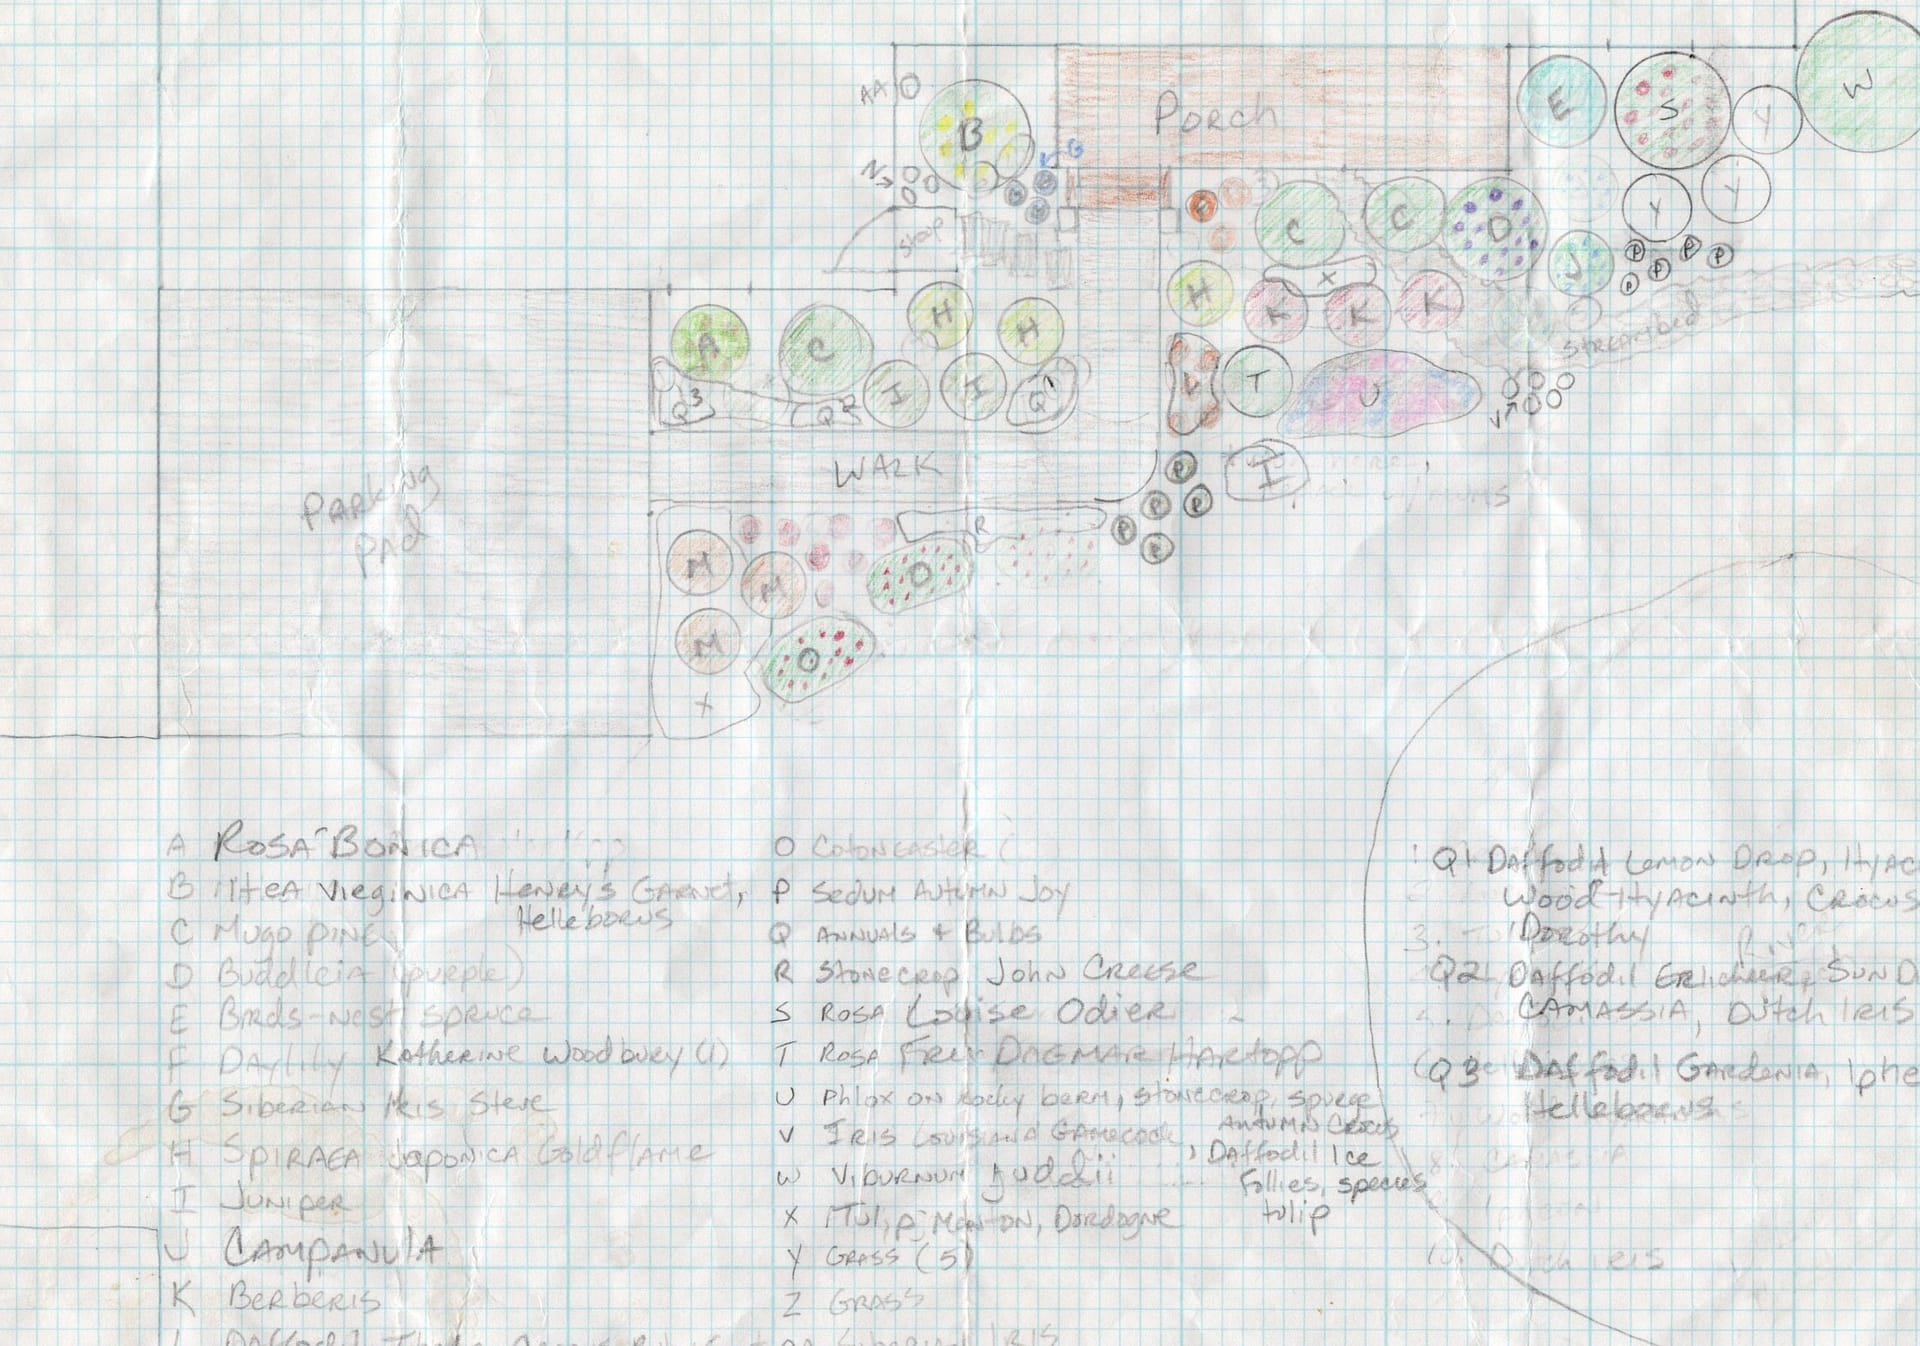 AA
B
Porch
E
S
Y
W
N
G
Y
Y
stoop
C
C
D
J
P
P
P
P
P
X
H
K
K
K
streambed
A
C
H
H
I
I
Q3
Q2
Q1
L
T
U
V
WALK
P
P
P
P
P
I
Parking
Pad
R
M
M
M
O
O
X
A Rosa Bonica
B Itea Virginica Henry's Garnet,
Helleborus
C Mugo pine
D Buddleia (purple)
E Birds-nest spruce
F Daylily Katherine Woodbury (1)
G Siberian Iris Steve
H Spiraea Japonica Goldflame
I Juniper
J Campanula
K Berberis
L Daffodil
O Cotoneaster
P Sedum Autumn Joy
Q Annuals + Bulbs
R Stonecrop John Creese
S Rosa Louise Odier
T Rosa Frau Dagmar Hartopp
U Phlox on rocky berm, stonecrop, spurge
Autumn Crocus
V Iris Louisiana Gamecock, Daffodil Ice
Follies, species
tulip
W Viburnum Juddii
X Tulip Menton, Dordogne
Y Grass (5)
Z Grass
AA Siberian Iris
Q1 Daffodil Lemon Drop, Hyac
Wood Hyacinth, Crocus
3. Dorothy
Q2 Daffodil Erlicheer, Sun D
Camassia, Dutch Iris
Q3 Daffodil Gardenia, Iphe
Helleborus
8. Camassia
10. Dutch iris